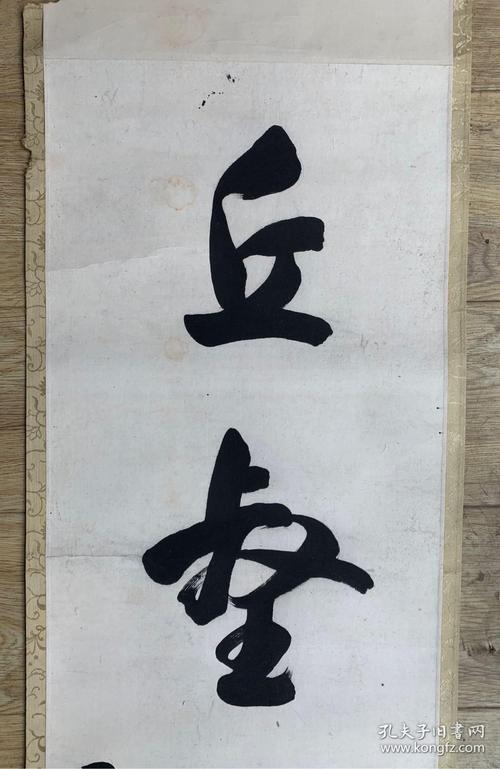 丘
壑
孔夫子旧书网
www.kongfz.com